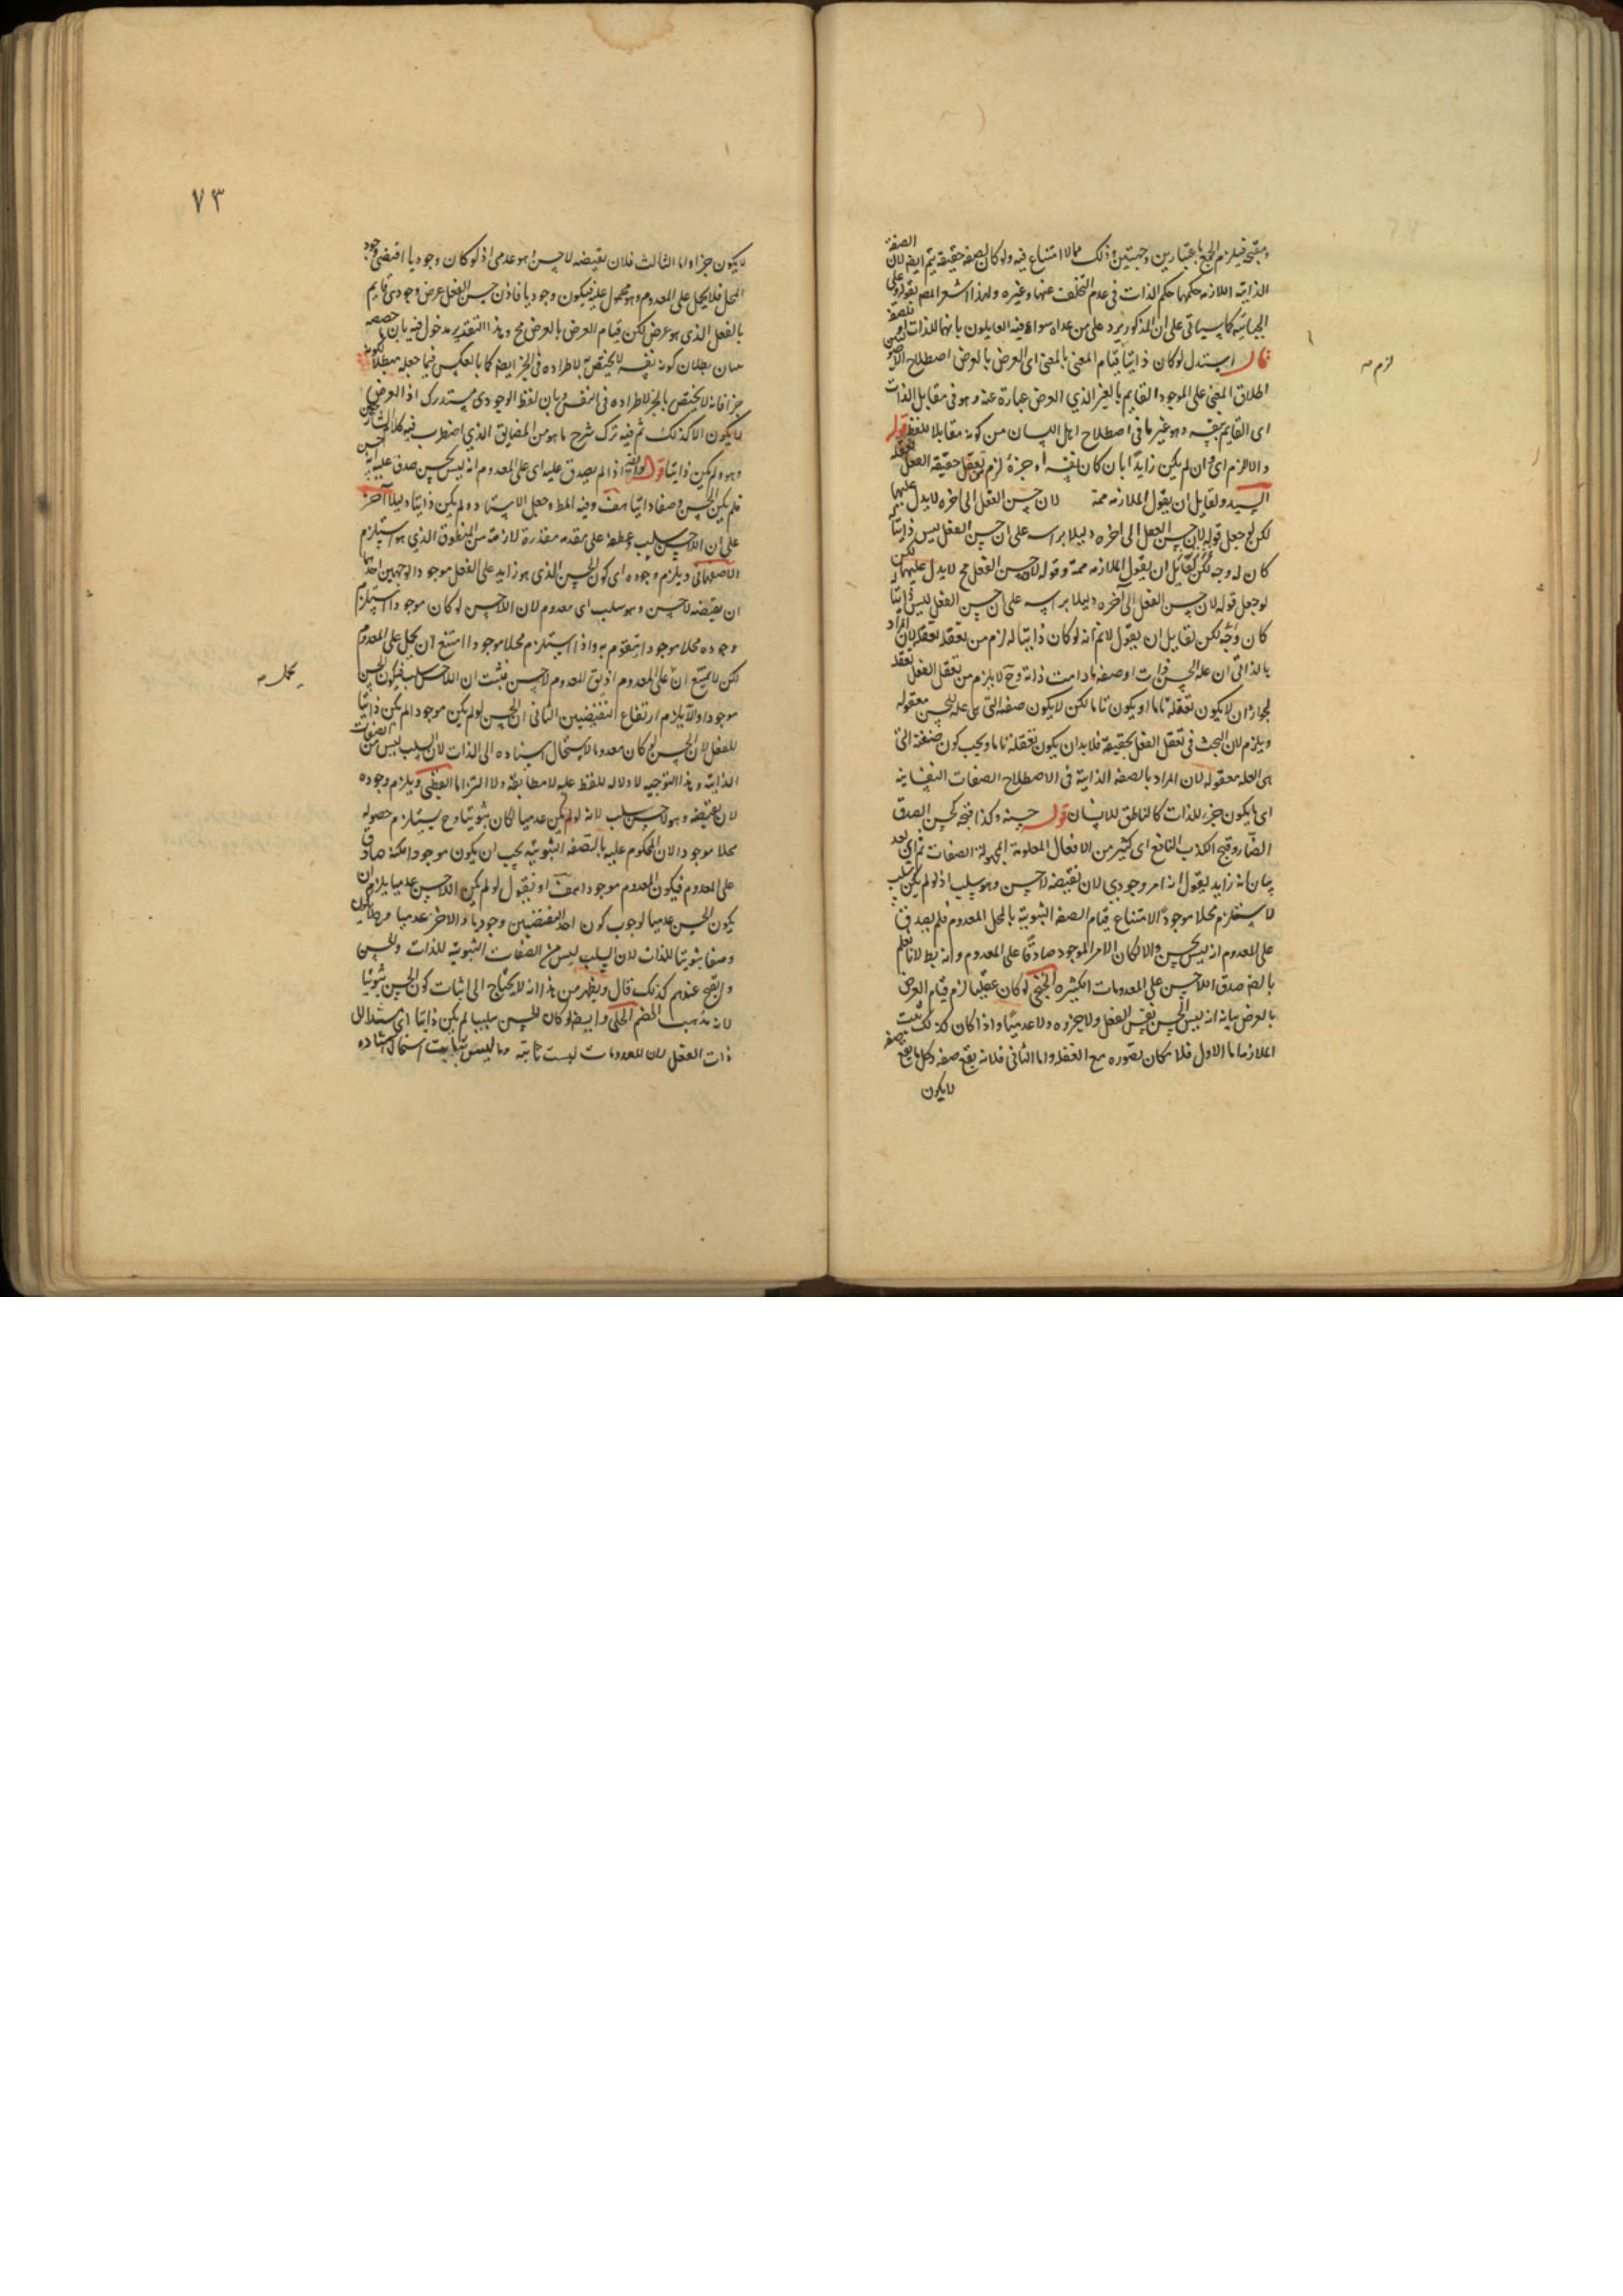 ومقبح فيلزم الجمع باعتبارين وجهتين وذلك مما لا امتناع فيه ولو كان لصفة حقيقة يتم ايضا لان الصفة
الذاتية اللازمة حكمها حكم الذات في عدم التخلف عنها وغيره ولهذا اشعر المص بقوله وعلى
الجبائية كما سياتي على ان المذكور يرد على من عداه سواء فيه القايلون بانها للذات او لصفة
قال استدل لو كان ذاتيا قيام المعنى بالمعنى اى العرض بالعرض اصطلاح
اطلاق المعنى على الموجود القايم بالغير الذي العرض عبارة عنه وهو في مقابل الذات
اى القايم بنفسه وهو غير ما في اصطلاح اهل اللسان من كونه مقابلا للفظ قوله
والا لزم اى وان لم يكن زايدا بان كان نفسه او جزءه لزم من تعقل حقيقة الفعل تعقله
السيد ولقايل ان يقول الملازمة ممة لان حسن الفعل الى اخره لا يدل عليها
لكن لو جعل قوله لان حسن الفعل الى اخره دليلا براسه على ان حسن الفعل ليس ذاتيا
كان له وجه لكن لقايل ان يقول الملازمة ممة وقوله لان حسن الفعل مح لا يدل عليها لكن
لو جعل قوله لان حسن الفعل الى آخره دليلا براسه على ان حسن الفعل ليس ذاتيا
كان وجه لكن لقايل ان يقول لا نم انه لو كان ذاتيا له لزم من تعقله تعقله لان المراد
بالذاتي ان علة الحسن ذات او صفة ما دامت ذاته وح لا يلزم من تعقل الفعل تعقله
لجواز ان لا يكون تعقله تاما او يكون تاما لكن لا يكون صفة التي هي علة للحسن معقولة
ويلزم لان البحث في تعقل الفعل بحقيقة فلا بدان يكون تعقله تاما ويجب كون صفته التى
هى العلة معقولة لان المراد بالصفة الذاتية في الاصطلاح الصفات النفسانية
اى ما يكون جزء للذات كالناطق للانسان قوله حسنه وكذا قبحه كحسن الصدق
الضار وقبح الكذب النافع اى كثير من الافعال المعلومة المجهولة الصفات ثم اى بعد
بيان انه زايد يقول انه امر وجودي لان نقيضه لا حسن وهو سلب اذ لو لم يكن سلب
لاستلزم محلا موجودا لامتناع قيام الصفة الثبوتية بالمحل المعدوم فلم يصدق
على المعدوم انه ليس بحسن والا لكان الامر الموجود صادقا على المعدوم وانه بط لانا نعلم
بالضم صدق اللاحسن على المعدومات الكثيرة الخنجي لو كان عقليا لزم قيام العرض
بالعرض بيانه انه ليس الحسن نفس الفعل ولا جزوه ولا عدميا واذا كان كذلك ثبت
الملازمة اما الاول فلامكان تصوره مع الغفلة واما الثاني فلانه يقع صفة وكل ما يقع صفة
لا يكون
لزم صـ
٧٣
لا يكون جزءا واما الثالث فلان نقيضه لا حسن وهو عدمى اذ لو كان وجوديا اقتضى وجود
المحل فلا يحمل على المعدوم وهو محمول عليه فيكون وجوديا فاذن حسن الفعل عرض وجودى قايم
بالفعل الذى هو عرض لكن قيام العرض بالعرض مح وهذا التقدير مدخول فيه بان ما خصصه
ببيان بطلان كونه نفسه لا يختص لاطراده فى الجزء ايضا كما بالعكس فيما جعله مبطلا لكونه
جزءا فانه لا يختص بالجزء لاطراده في النفس وبان لفظ الوجودي مستدرك اذ العرض
لا يكون الا كذلك ثم فيه ترك شرح ما هو من المضايق الذي اضطرب فيه كلام الشارحين
وهو ولم يكن ذاتيا قوله وايضا اذا لم يصدق عليه اى على المعدوم انه ليس بحسن صدق عليه انه حسن
فلم يكن الحسن وصفا ذاتيا هف وفيه المط وجعل الاستاد ولم يكن ذاتيا دليلا آخر
على ان اللاحسن سلب وعطفه على مقدمة مقدرة لازمة من المنطوق الذي هو استلزم
الاصفهانى ويلزم وجوده اى كون الحسن الذى هو زايد على الفعل موجودا لوجهين احدهما
ان نقيضه لا حسن وهو سلب اى معدوم لان اللاحسن لو كان موجودا استلزم
وجوده محلا موجودا يتقوم به واذا استلزم محلا موجودا امتنع ان يحمل على المعدوم
لكن لا يمتنع ان على المعدوم اذ يق المعدوم لا حسن فثبت ان اللاحسن سلب فيكون الحسن
موجودا والا يلزم ارتفاع النقيضين الثانى ان الحسن لو لم يكن موجودا لم يكن ذاتيا
للفعل لان الحسن لو كان معدوما لاستحال اسناده الى الذات لان السلب ليس من الصفات
الذاتية وهذا التوجيه لا دلالة للفظ عليه لا مطابقة ولا التزاما القطبى ويلزم وجوده
لان نقيضه وهو لاحسن سلب لانه لو لم يكن عدميا لكان ثبوتيا وح يستلزم حصوله
محلا موجودا لان المحكوم عليه بالصفة الثبوتية يجب ان يكون موجودا لكنه صادق
على المعدوم فيكون المعدوم موجودا هف او نقول لو لم يكن اللاحسن عدميا يلزم ان
يكون الحسن عدميا لوجوب كون احد النقيضين وجوديا والاخر عدميا
وصفا ثبوتيا للذات لان السلب ليس من الصفات الثبوتية للذات والحسن
والقبح عندهم كذلك قال ويظهر من هذا انه لا يحتاج الى اثبات كون الحسن ثبوتيا
لانه مذهب الخصم الحلى وايضا لو كان الحسن سلبيا لم يكن ذاتيا اى
ذات الفعل لان المعدومات ليست ثابتة وما ليس بثابت استحال اسناده
يحمل صـ